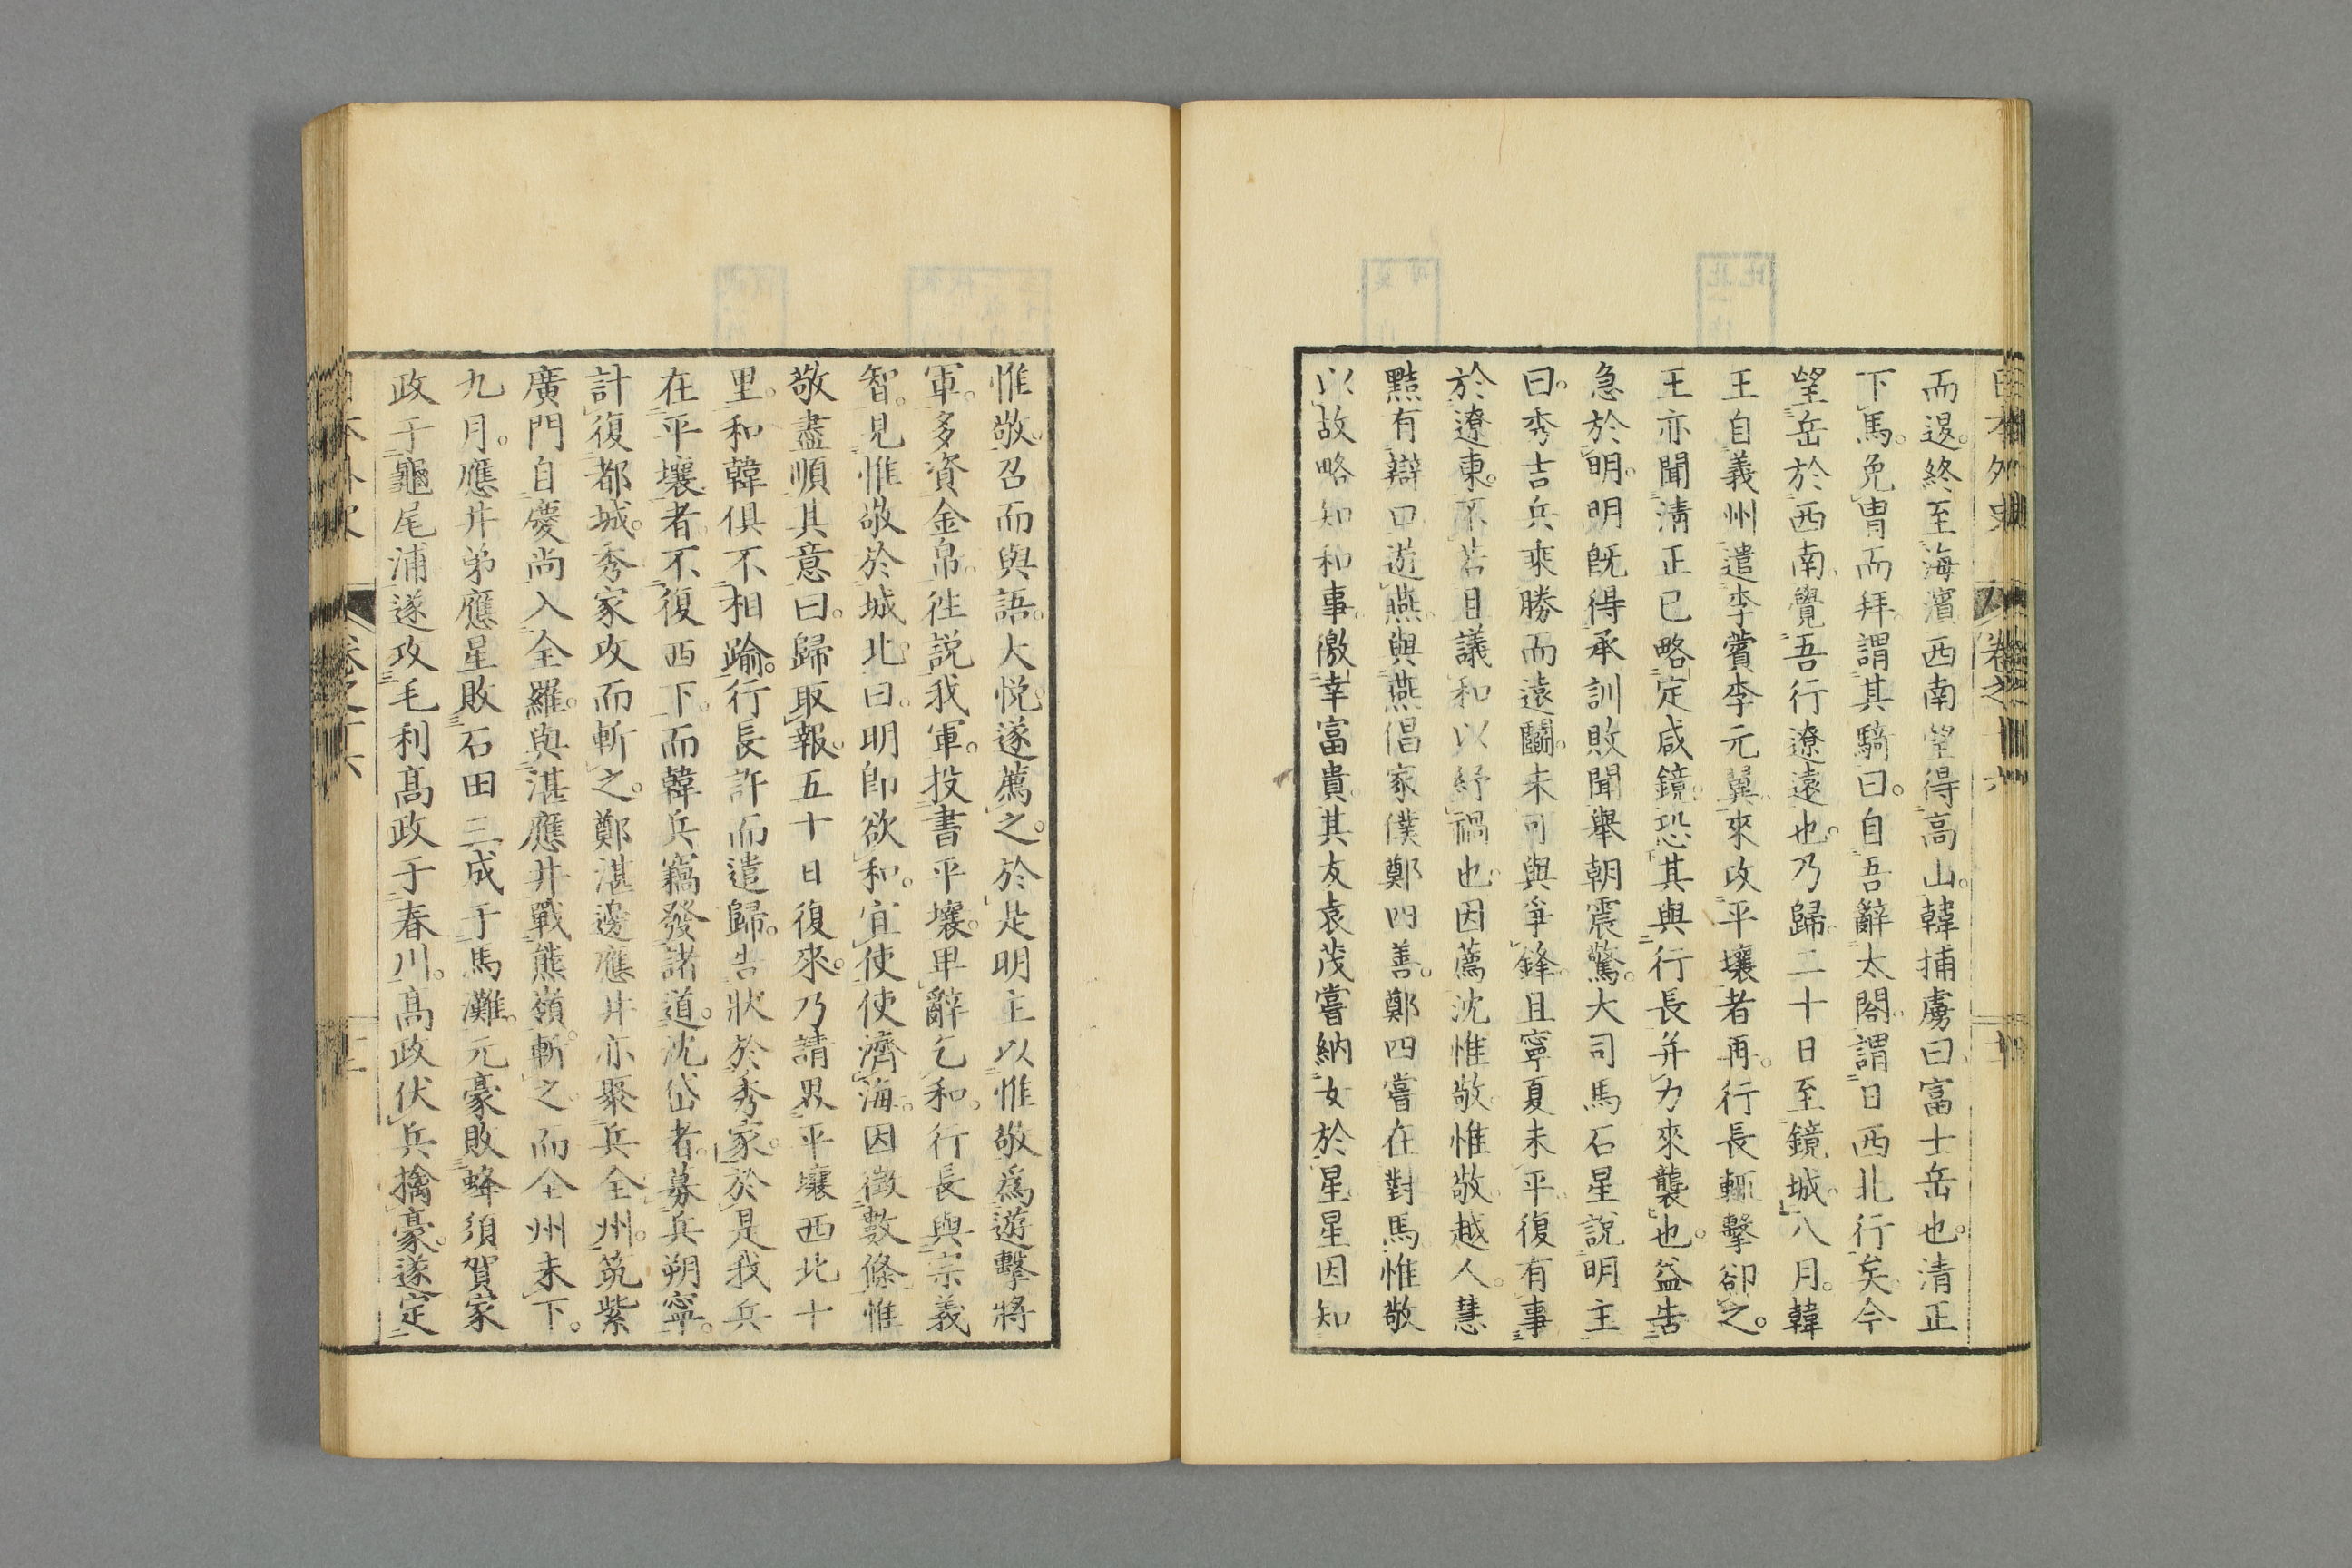 日本外史 卷之十六
而退。終至海濱西南望得高山。韓捕虜曰富士岳也。清正
下馬。免冑而拜。謂其騎曰。自吾辭太閤。謂日西北行矣。今
望岳於西南。覺吾行遼遠也。乃歸。二十日至鏡城。八月。韓
王自義州遣李薲李元翼。來攻平壤者再。行長輒擊卻之。
王亦聞清正已略定咸鏡。恐其與行長并力來襲也。益告
急於明。明既得承訓敗聞舉朝震驚。大司馬石星說明主
曰。秀吉兵乘勝而遠鬭。未可與爭鋒。且寧夏未平。復有事
於遼東。不若且議和以紓禍也。因薦沈惟敬。惟敬越人。慧
黠有辯口遊燕。與燕倡家僕鄭四善。鄭四嘗在對馬惟敬
以故略知和事。徼幸富貴。其友袁茂嘗納女於星。星因知
惟敬。召而與語。大悅遂薦之。於是明主以惟敬爲遊擊將
軍。多資金帛。往說我軍。投書平壤。卑辭乞和。行長與宗義
智。見惟敬於城北。曰。明卽欲和。宜使使濟海。因徵數條。惟
敬盡順其意曰。歸取報。五十日復來。乃請界平壤西北十
里。和韓俱不相踰。行長許而遣歸。告狀於秀家。於是我兵
在平壤者。不復西下。而韓兵竊發諸道。沈岱者。募兵朔寧。
計復都城。秀家攻而斬之。鄭湛邊應井亦聚兵全州。筑紫
廣門自慶尚入全羅。與湛應井戰熊嶺。斬之。而全州未下。
九月。應井弟應星敗石田三成于馬灘。元豪敗蜂須賀家
政于龜尾浦遂攻毛利高政于春川。高政伏兵擒豪。遂定
日本外史 卷之十六